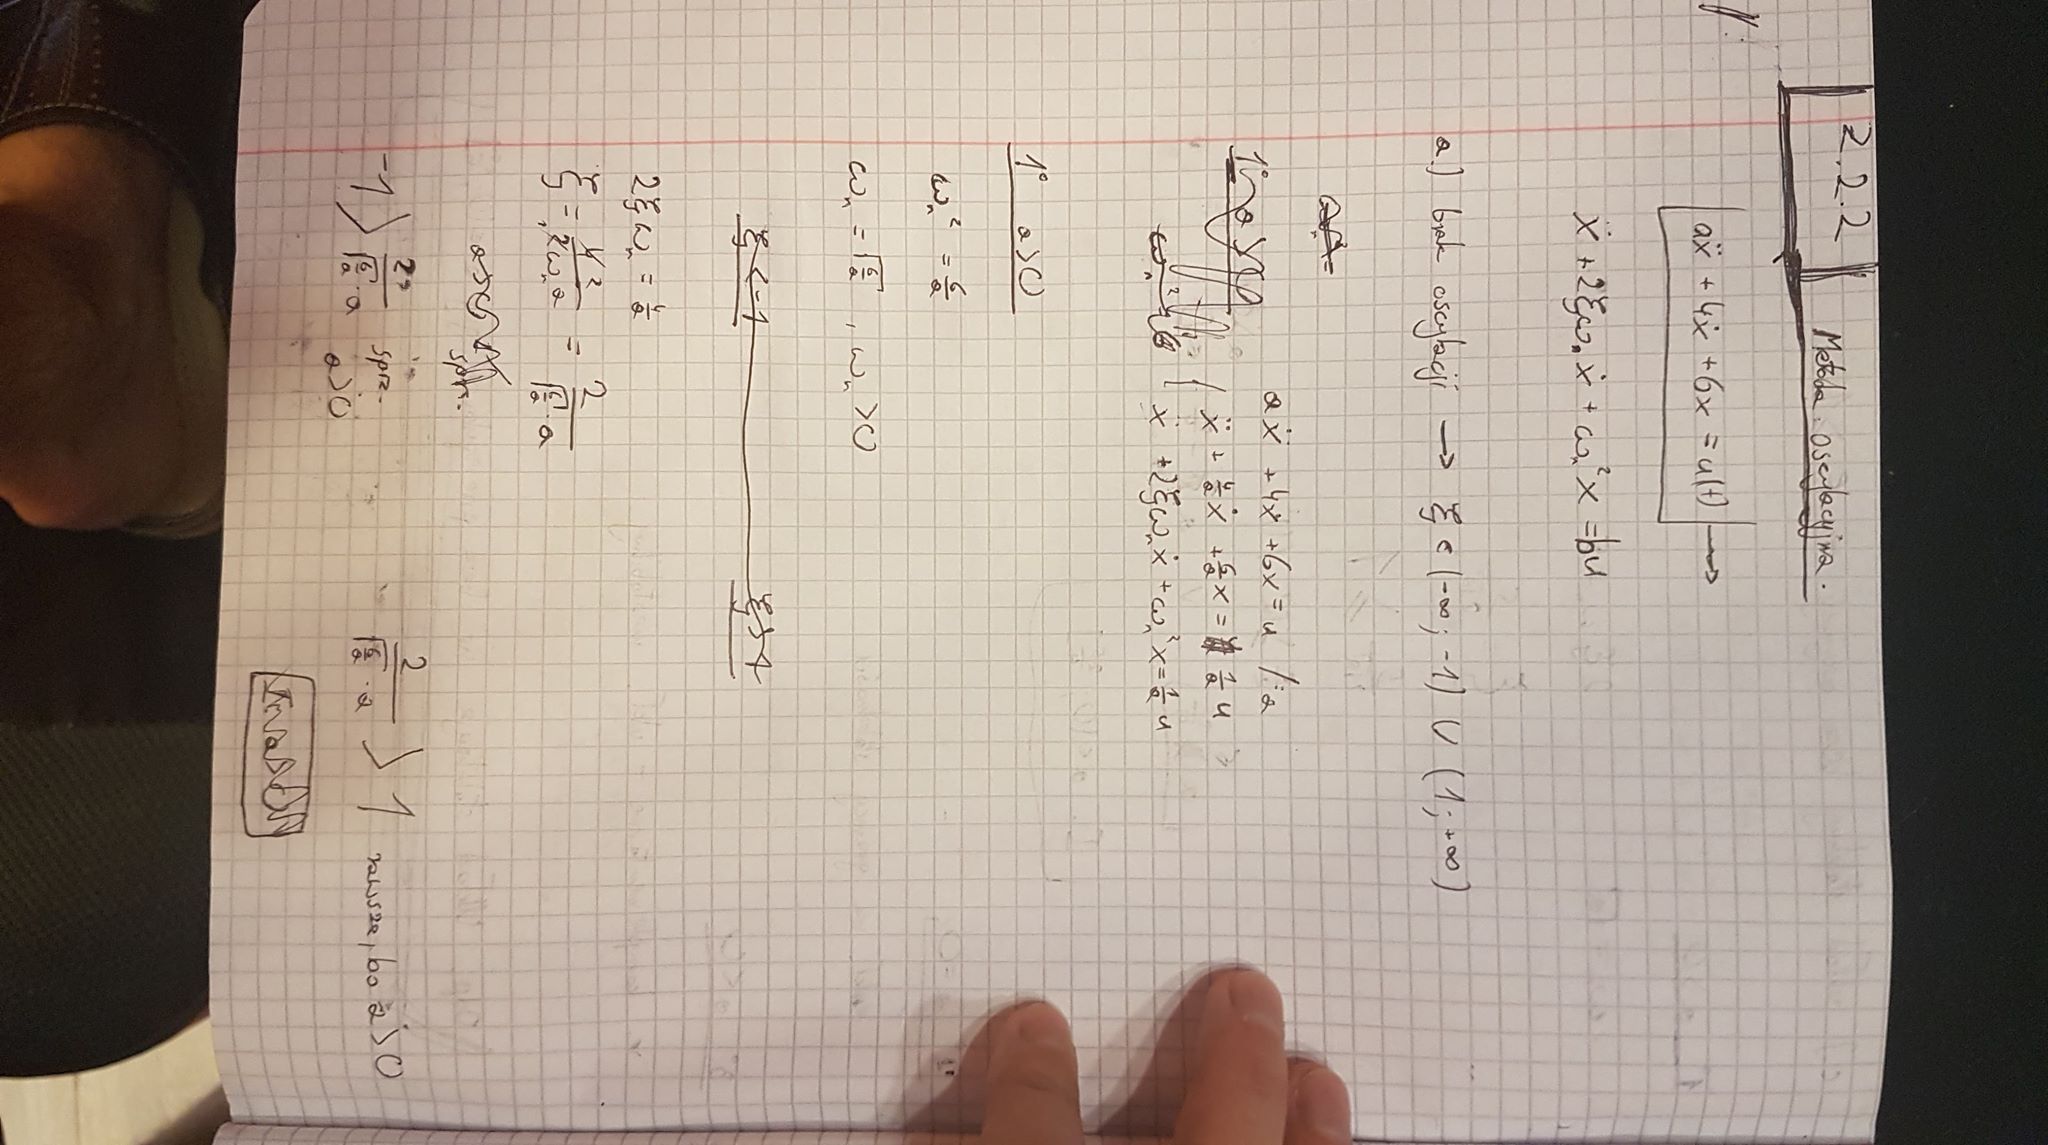 Z.2.2
Metoda oscylacyjna.
1.
aẍ + 4ẋ + 6x = u(t) →
ẍ + 2ξωₙẋ + ωₙ²x = bu
a.) brak oscylacji → ξ ∈ (-∞; -1) ∪ (1; +∞)
aẍ + 4ẋ + 6x = u /:a
ẍ + 4/a ẋ + 6/a x = 1/a u
ẍ + 2ξωₙẋ + ωₙ²x = 1/a u
1° a>0
ωₙ² = 6/a
ωₙ = √(6/a) , ωₙ >0
ξ < -1 ξ > 1
2ξωₙ = 4/a
ξ = 4 2 / 2ωₙa = 2 / √(6/a) · a
spr.
-1 > 2 / √(6/a) · a sprz. a>0
2 / √(6/a) · a > 1 zawsze, bo a>0